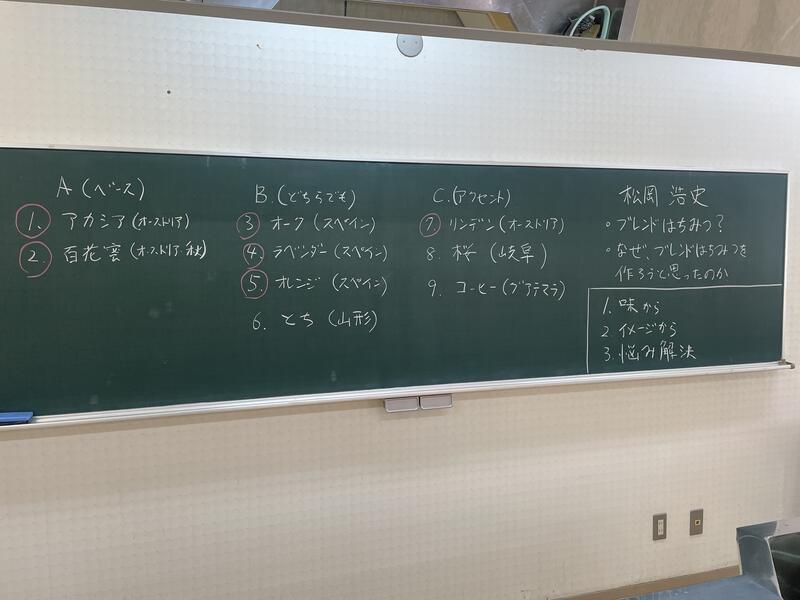 A (ベース)
1. アカシア (オーストリア)
2. 百花蜜 (オーストリア・秋)
B. (どちらでも)
3 オーク (スペイン)
4. ラベンダー (スペイン)
5. オレンジ (スペイン)
6. とち (山形)
C. (アクセント)
7 リンデン (オーストリア)
8. 桜 (岐阜)
9. コーヒー (グアテマラ)
松岡 浩史
・ブレンドはちみつ?
・なぜ、ブレンドはちみつを
作ろうと思ったのか
1. 味から
2. イメージから
3. 悩み解決